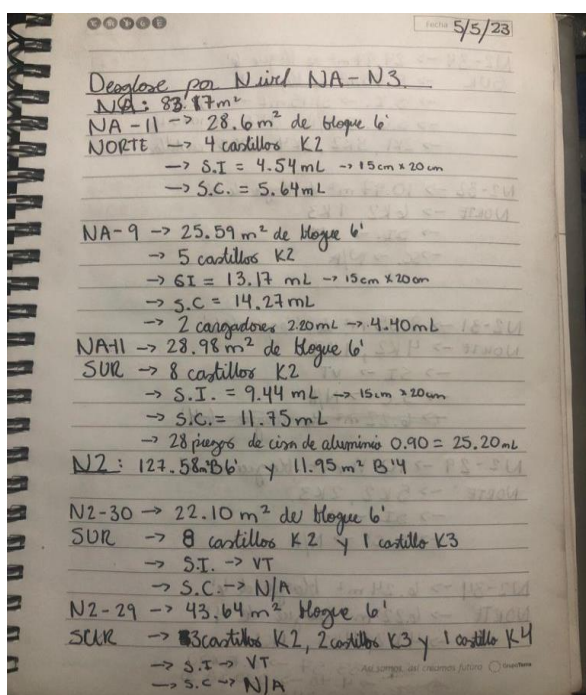 fecha 5/5/23
Desglose por Nivel NA-N3.
NA: 83.17m²
NA-11 -> 28.6 m² de bloque 6'
NORTE -> 4 castillos K2
-> S.I = 4.54 mL -> 15cm x 20cm
-> S.C. = 5.64mL
NA-9 -> 25.59 m² de bloque 6'
-> 5 castillos K2
-> SI = 13.17 mL -> 15cm x 20cm
-> S.C = 14.27mL
-> 2 cargadores 2.20mL -> 4.40mL
NA-11 -> 28.98 m² de bloque 6'
SUR -> 8 castillos K2
-> S.I. = 9.44 mL -> 15cm x 20cm
-> S.C. = 11.75mL
-> 28 piezas de cisa de aluminio 0.90 = 25.20mL
N2: 127.58m²B6' y 11.95 m² B'4
N2-30 -> 22.10 m² de bloque 6'
SUR -> 8 castillos K2 y 1 castillo K3
-> S.I. -> VT
-> S.C. -> N/A
N2-29 -> 43.64 m² bloque 6'
SUR -> 3 castillos K2, 2 castillos K3 y 1 castillo K4
-> S.I -> VT
-> S.C -> N/A
Así somos, así creamos futuro.